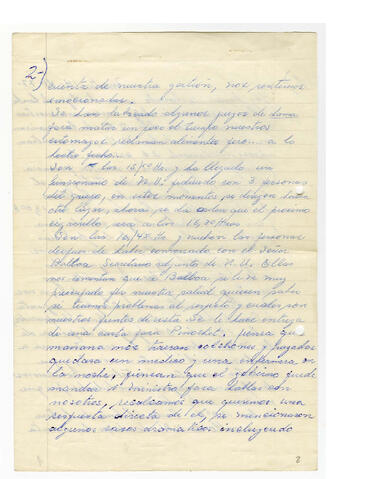 2-)
cuenta de nuestra gestión, nos sentimos
emocionados.
Se han tratado algunos juegos de dama
para matar un poco el tiempo nuestros
estomagos reclaman alimentos pero a lo
hecho pecho.
Son las 15,15 Hs. y ha llegado un
funcionario de N.U. pidiendo con 3 personas
del grupo, en estos momentos se dirigen hacia
otro lugar, ahora se da cuenta que el proximo
cigarrillo sera a las 16,30 Hrs.
Son las 16,45 Hs y vuelven las personas
despues de haber conversado con el Señor
Balboa Secretario adjunto de N.U. Ellos
nos cuentan que a Balboa se le ve muy
preocupado por nuestra salud, quieren saber
si tuvimos problemas al respecto y cuales son
nuestros puntos de vista. Se le hace entrega
de una carta para Pinochet, piensa que
mañana nos traeran colchones y frazadas
quedara un medico y una enfermera en
la noche, piensan que el gobierno puede
mandar a ministro para hablar con
nosotros, recalcamos que queremos una
respuesta directa de el, se mencionaron
algunos casos dramaticos incluyendo
2